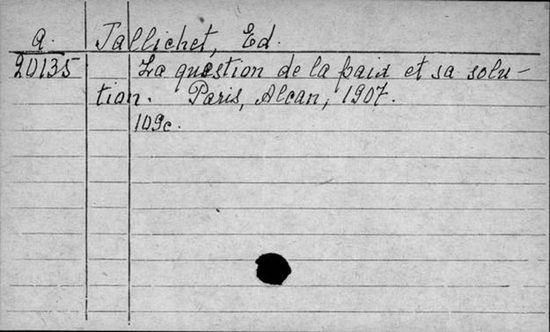 a. Tallichet, Ed.
20135 La question de la paix et sa solu-
tion. Paris, Alcan, 1907.
109c.